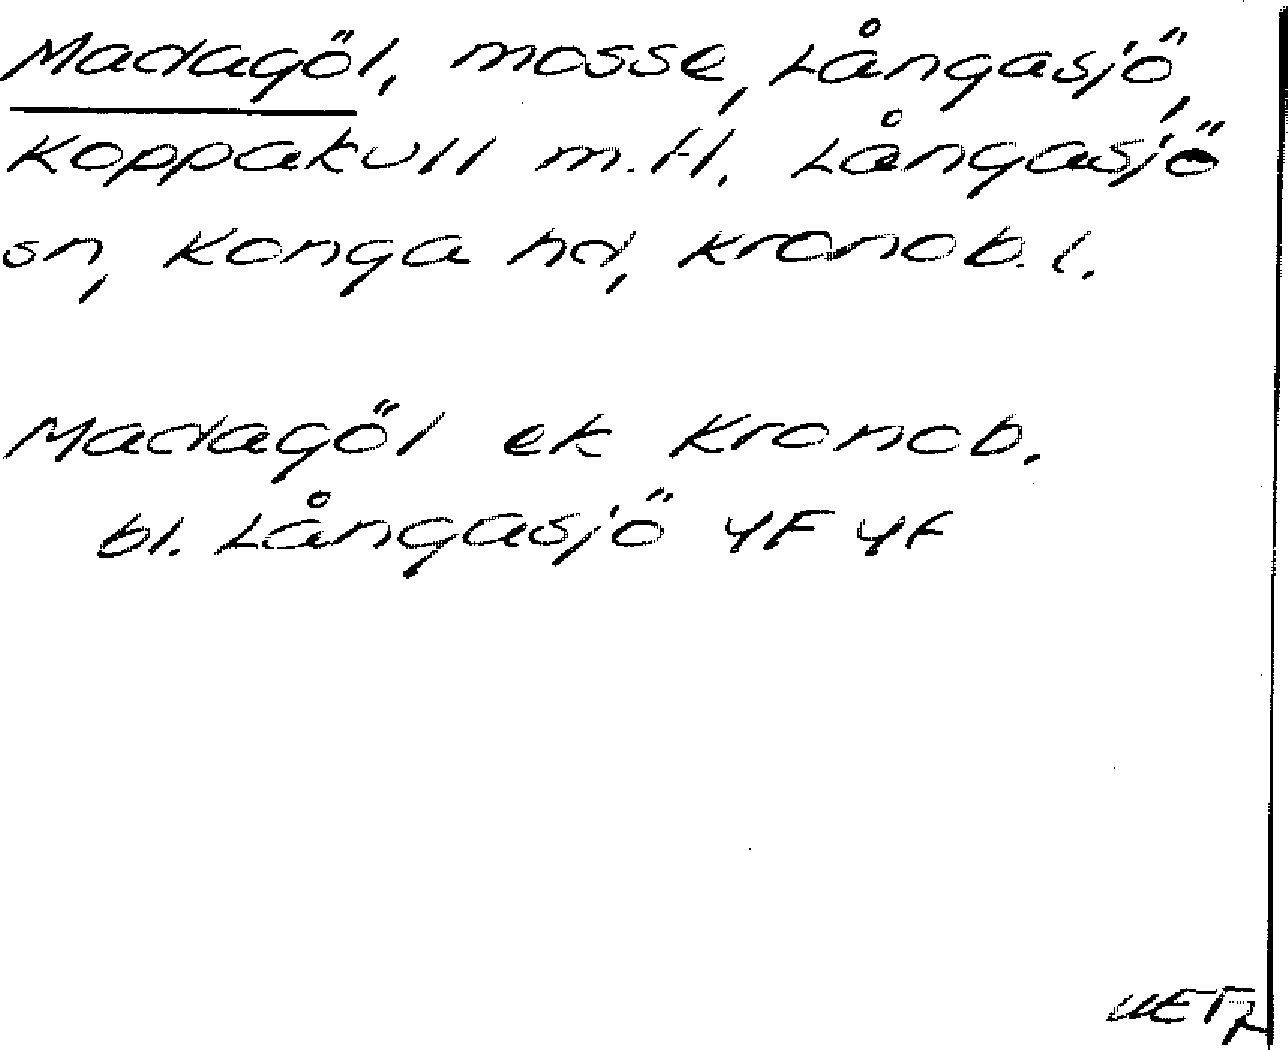 Madagöl, mosse, Långasjö,
Koppakull m.fl. Långasjö
sn, Konga hd, Kronob. l.
Madagöl ek Kronob.
bl. Långasjö 4F 4f